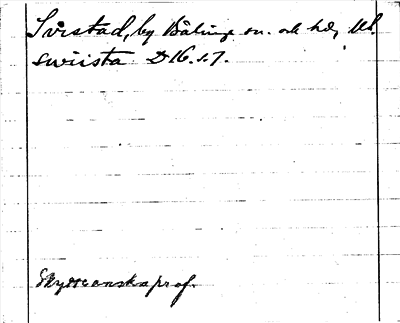 Svista​d, by Bälinge sn. ok hd, Upl.
swiista D16. s. 7.
Skytteanska prof.